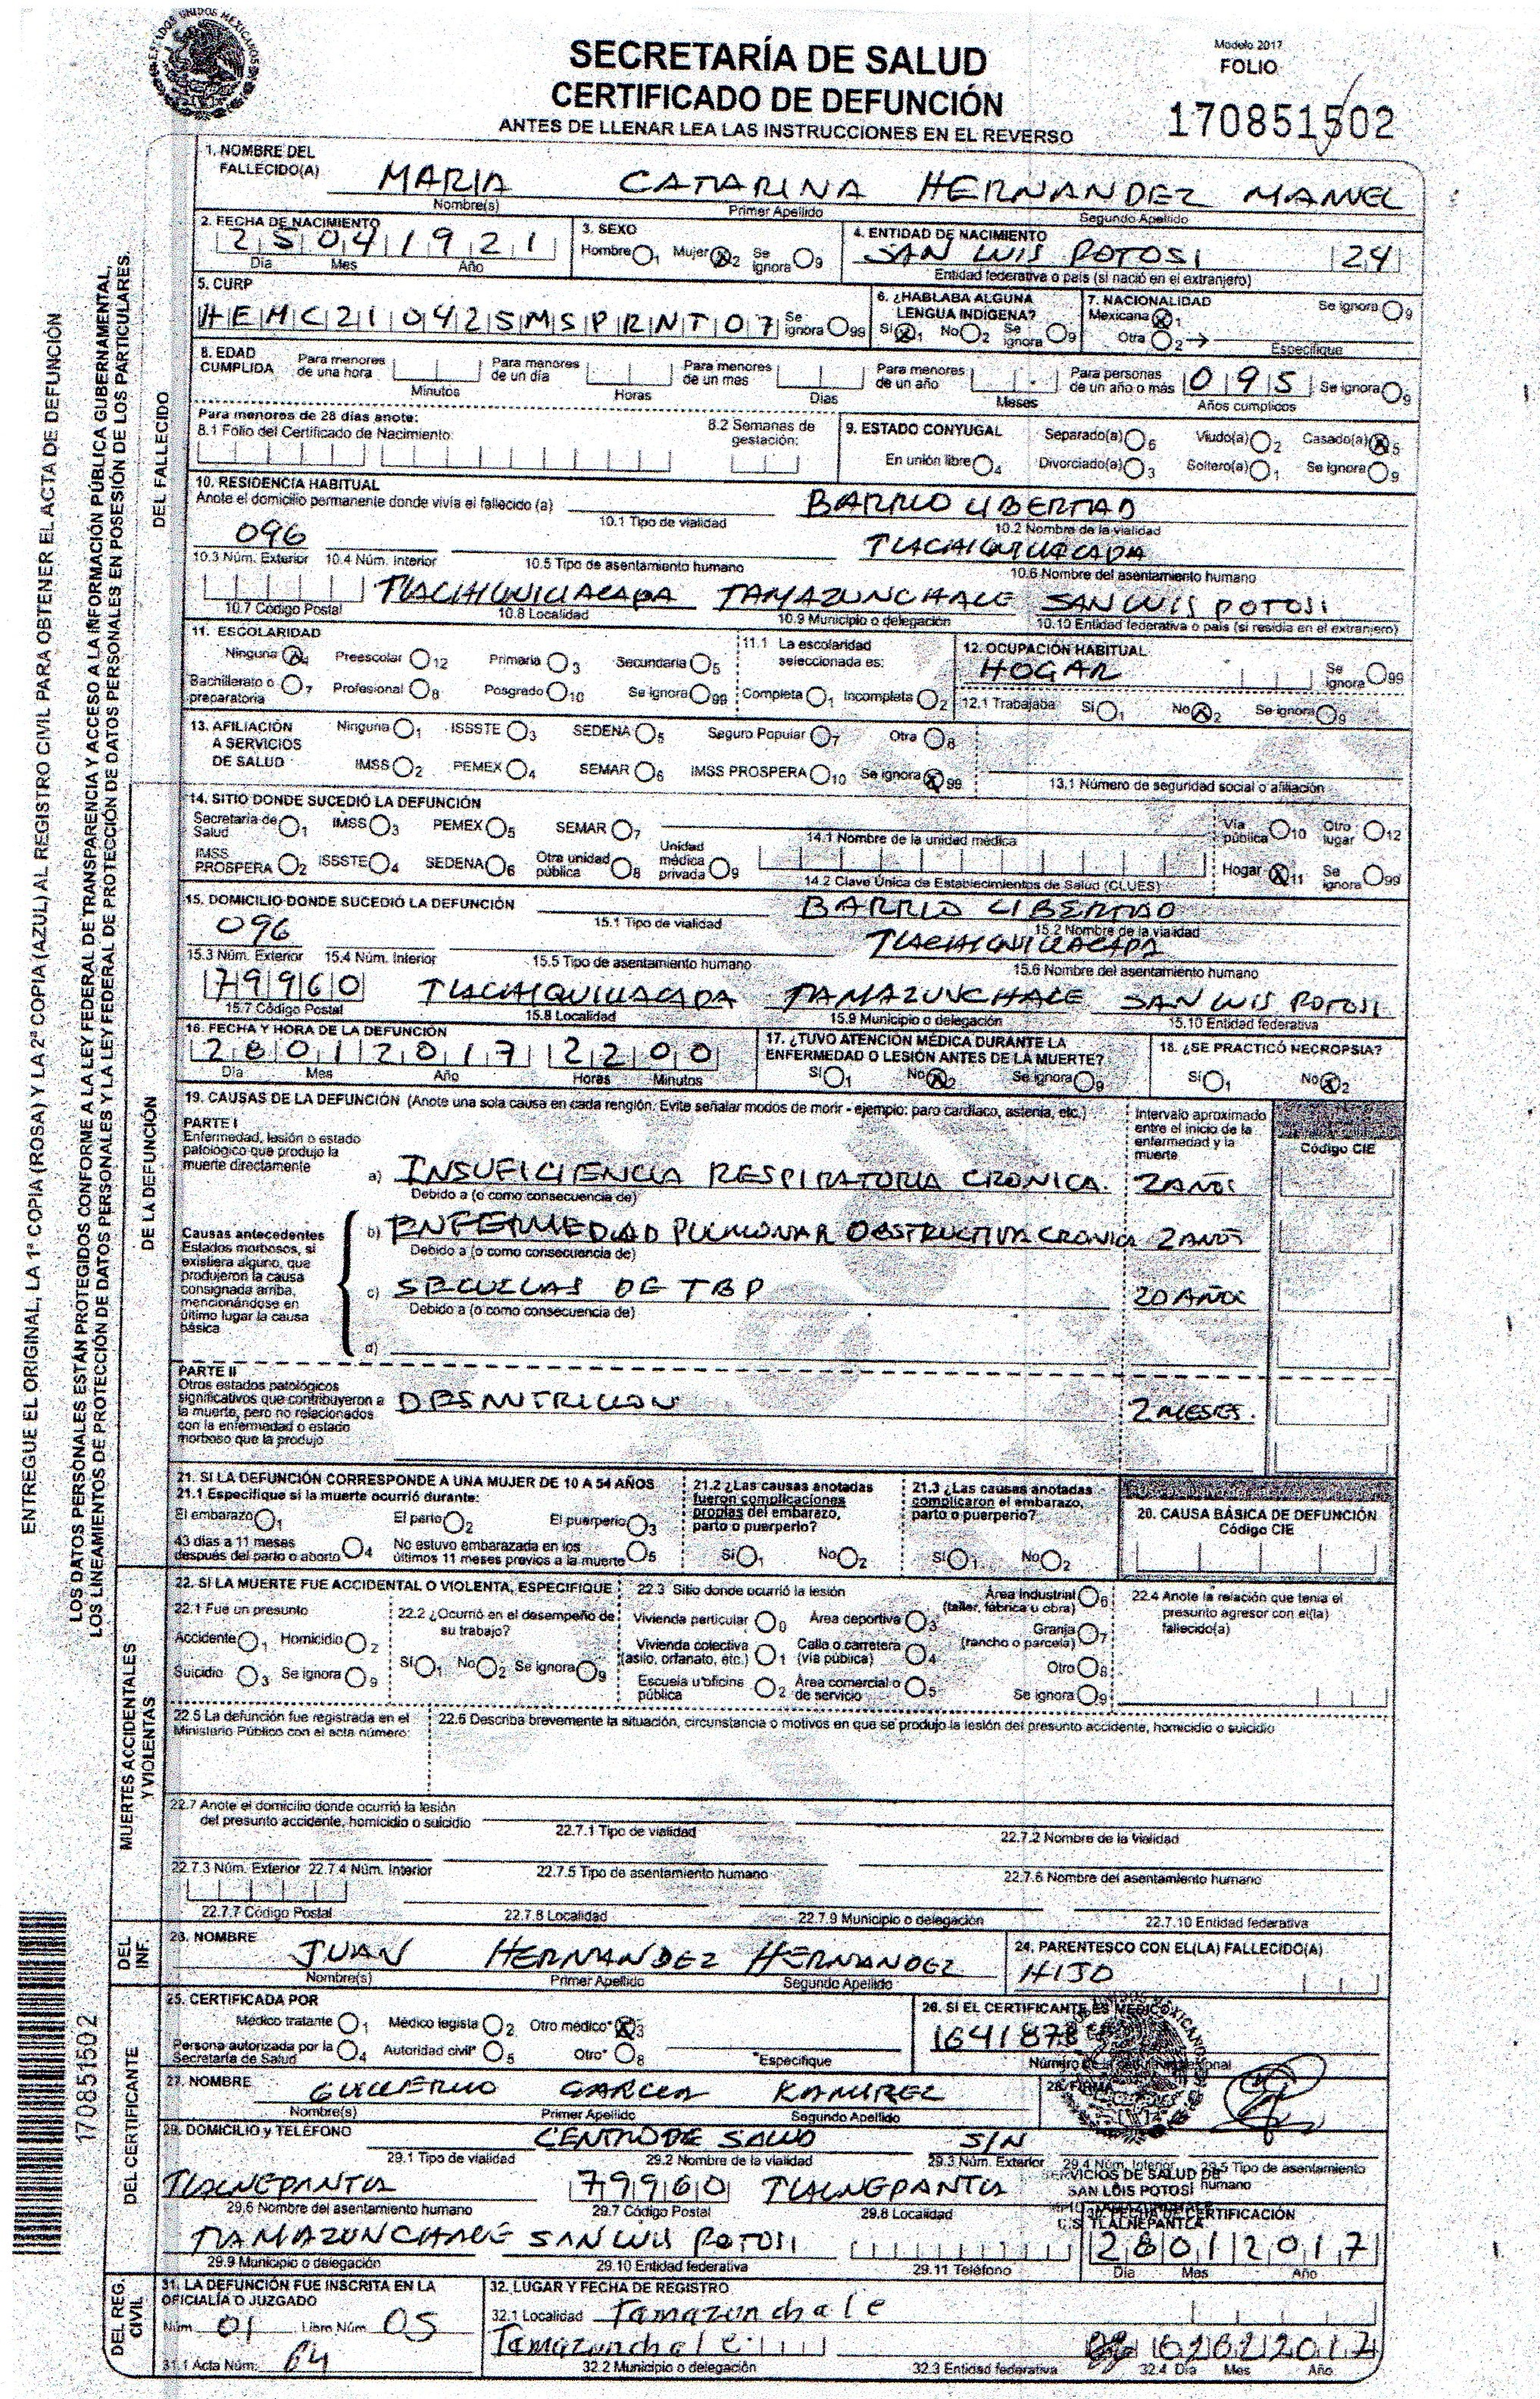 ESTADOS UNIDOS MEXICANOS
SECRETARÍA DE SALUD
CERTIFICADO DE DEFUNCIÓN
ANTES DE LLENAR LEA LAS INSTRUCCIONES EN EL REVERSO
Modelo 2017
FOLIO
170851502
ENTREGUE EL ORIGINAL, LA 1ª COPIA (ROSA) Y LA 2ª COPIA (AZUL) AL REGISTRO CIVIL PARA OBTENER EL ACTA DE DEFUNCIÓN
LOS DATOS PERSONALES ESTÁN PROTEGIDOS CONFORME A LA LEY FEDERAL DE TRANSPARENCIA Y ACCESO A LA INFORMACIÓN PÚBLICA GUBERNAMENTAL,
LOS LINEAMIENTOS DE PROTECCIÓN DE DATOS PERSONALES Y LA LEY FEDERAL DE PROTECCIÓN DE DATOS PERSONALES EN POSESIÓN DE LOS PARTICULARES.
DEL FALLECIDO
1. NOMBRE DEL FALLECIDO(A) MARIA CATARINA HERNANDEZ MANUEL
Nombre(s) Primer Apellido Segundo Apellido
2. FECHA DE NACIMIENTO 25 04 1921
Día Mes Año
3. SEXO
Hombre 1 Mujer 2 Se ignora 9
4. ENTIDAD DE NACIMIENTO
SAN LUIS POTOSI 24
Entidad federativa o país (si nació en el extranjero)
5. CURP
HEMC210425MSPRNT07 Se ignora 99
6. ¿HABLABA ALGUNA LENGUA INDÍGENA?
Sí 1 No 2 Se ignora 9
7. NACIONALIDAD Se ignora 9
Mexicana 1
Otra 2 Especifique
8. EDAD CUMPLIDA
Para menores de una hora Minutos
Para menores de un día Horas
Para menores de un mes Días
Para menores de un año Meses
Para personas de un año o más 095 Se ignora 9
Años cumplidos
Para menores de 28 días anote:
8.1 Folio del Certificado de Nacimiento:
8.2 Semanas de gestación:
9. ESTADO CONYUGAL Separado(a) 6 Viudo(a) 2 Casado(a) 5
En unión libre 4 Divorciado(a) 3 Soltero(a) 1 Se ignora 9
10. RESIDENCIA HABITUAL
Anote el domicilio permanente donde vivía el fallecido (a) BARRIO LIBERTAD
10.1 Tipo de vialidad 10.2 Nombre de la vialidad
096 TLACHIQUILLACADA
10.3 Núm. Exterior 10.4 Núm. Interior 10.5 Tipo de asentamiento humano 10.6 Nombre del asentamiento humano
TLACHIQUILLACADA TAMAZUNCHALE SAN LUIS POTOSI
10.7 Código Postal 10.8 Localidad 10.9 Municipio o delegación 10.10 Entidad federativa o país (si residía en el extranjero)
11. ESCOLARIDAD
Ninguna Preescolar 12 Primaria 3 Secundaria 5
Bachillerato o preparatoria 7 Profesional 8 Posgrado 10 Se ignora 99
11.1 La escolaridad seleccionada es:
Completa 1 Incompleta 2
12. OCUPACIÓN HABITUAL
HOGAR Se ignora 99
12.1 Trabajaba Sí 1 No 2 Se ignora 9
13. AFILIACIÓN A SERVICIOS DE SALUD
Ninguna 1 ISSSTE 3 SEDENA 5 Seguro Popular 7 Otra 8
IMSS 2 PEMEX 4 SEMAR 6 IMSS PROSPERA 10 Se ignora 99
13.1 Número de seguridad social o afiliación
DE LA DEFUNCIÓN
14. SITIO DONDE SUCEDIÓ LA DEFUNCIÓN
Secretaría de Salud 1 IMSS 3 PEMEX 5 SEMAR 7
14.1 Nombre de la unidad médica
Vía pública 10 Otro lugar 12
IMSS PROSPERA 2 ISSSTE 4 SEDENA 6 Otra unidad pública 8 Unidad médica privada 9
14.2 Clave Única de Establecimientos de Salud (CLUES)
Hogar 11 Se ignora 99
15. DOMICILIO DONDE SUCEDIÓ LA DEFUNCIÓN BARRIO LIBERTAD
15.1 Tipo de vialidad 15.2 Nombre de la vialidad
096 TLACHIQUILLACADA
15.3 Núm. Exterior 15.4 Núm. Interior 15.5 Tipo de asentamiento humano 15.6 Nombre del asentamiento humano
79960 TLACHIQUILLACADA TAMAZUNCHALE SAN LUIS POTOSI
15.7 Código Postal 15.8 Localidad 15.9 Municipio o delegación 15.10 Entidad federativa
16. FECHA Y HORA DE LA DEFUNCIÓN
28 01 2017 22 00
Día Mes Año Horas Minutos
17. ¿TUVO ATENCIÓN MÉDICA DURANTE LA ENFERMEDAD O LESIÓN ANTES DE LA MUERTE?
Sí 1 No 2 Se ignora 9
18. ¿SE PRACTICÓ NECROPSIA?
Sí 1 No 2
19. CAUSAS DE LA DEFUNCIÓN (Anote una sola causa en cada renglón. Evite señalar modos de morir - ejemplo: paro cardiaco, astenia, etc.)
Intervalo aproximado entre el inicio de la enfermedad y la muerte
Código CIE
PARTE I
Enfermedad, lesión o estado patológico que produjo la muerte directamente
a) INSUFICIENCIA RESPIRATORIA CRONICA. 2 AÑOS
Debido a (o como consecuencia de)
Causas antecedentes
Estados morbosos, si existiera alguno, que produjeron la causa consignada arriba, mencionándose en último lugar la causa básica
b) ENFERMEDAD PULMONAR OBSTRUCTIVA CRONICA 2 AÑOS
Debido a (o como consecuencia de)
c) SECUELAS DE TBP 20 AÑOS
Debido a (o como consecuencia de)
d)
PARTE II
Otros estados patológicos significativos que contribuyeron a la muerte, pero no relacionados con la enfermedad o estado morboso que la produjo
DESNUTRICION 2 MESES.
21. SI LA DEFUNCIÓN CORRESPONDE A UNA MUJER DE 10 A 54 AÑOS
21.1 Especifique si la muerte ocurrió durante:
El embarazo 1 El parto 2 El puerperio 3
43 días a 11 meses después del parto o aborto 4 No estuvo embarazada en los últimos 11 meses previos a la muerte 5
21.2 ¿Las causas anotadas fueron complicaciones propias del embarazo, parto o puerperio?
Sí 1 No 2
21.3 ¿Las causas anotadas complicaron el embarazo, parto o puerperio?
Sí 1 No 2
20. CAUSA BÁSICA DE DEFUNCIÓN
Código CIE
MUERTES ACCIDENTALES Y VIOLENTAS
22. SI LA MUERTE FUE ACCIDENTAL O VIOLENTA, ESPECIFIQUE
22.1 Fue un presunto
Accidente 1 Homicidio 2
Suicidio 3 Se ignora 9
22.2 ¿Ocurrió en el desempeño de su trabajo?
Sí 1 No 2 Se ignora 9
22.3 Sitio donde ocurrió la lesión
Vivienda particular 0 Área deportiva 3 Área industrial (taller, fábrica u obra) 6
Vivienda colectiva (asilo, orfanato, etc.) 1 Calle o carretera (vía pública) 4 Granja (rancho o parcela) 7
Escuela u oficina pública 2 Área comercial o de servicio 5 Otro 8
Se ignora 9
22.4 Anote la relación que tenía el presunto agresor con el(la) fallecido(a)
22.5 La defunción fue registrada en el Ministerio Público con el acta número:
22.6 Describa brevemente la situación, circunstancia o motivos en que se produjo la lesión del presunto accidente, homicidio o suicidio
22.7 Anote el domicilio donde ocurrió la lesión del presunto accidente, homicidio o suicidio
22.7.1 Tipo de vialidad 22.7.2 Nombre de la Vialidad
22.7.3 Núm. Exterior 22.7.4 Núm. Interior 22.7.5 Tipo de asentamiento humano 22.7.6 Nombre del asentamiento humano
22.7.7 Código Postal 22.7.8 Localidad 22.7.9 Municipio o delegación 22.7.10 Entidad federativa
DEL INF.
23. NOMBRE JUAN HERNANDEZ HERNANDEZ
Nombre(s) Primer Apellido Segundo Apellido
24. PARENTESCO CON EL(LA) FALLECIDO(A)
HIJO
DEL CERTIFICANTE
25. CERTIFICADA POR
Médico tratante 1 Médico legista 2 Otro médico* 3
Persona autorizada por la Secretaría de Salud 4 Autoridad civil* 5 Otro* 8 *Especifique
26. SI EL CERTIFICANTE ES MÉDICO
1641878
Número de la cédula profesional
27. NOMBRE GUILLERMO GARCIA RAMIREZ
Nombre(s) Primer Apellido Segundo Apellido
28. FIRMA
29. DOMICILIO y TELÉFONO CENTRO DE SALUD S/N
29.1 Tipo de vialidad 29.2 Nombre de la vialidad 29.3 Núm. Exterior 29.4 Núm. Interior 29.5 Tipo de asentamiento humano
SERVICIOS DE SALUD DE
SAN LUIS POTOSI
C.S. TLALNEPANTLA
TLALNEPANTLA 79960 TLALNEPANTLA
29.6 Nombre del asentamiento humano 29.7 Código Postal 29.8 Localidad
30. FECHA DE CERTIFICACIÓN
TAMAZUNCHALE SAN LUIS POTOSI 28 01 2017
29.9 Municipio o delegación 29.10 Entidad federativa 29.11 Teléfono Día Mes Año
170851502
DEL REG. CIVIL
31. LA DEFUNCIÓN FUE INSCRITA EN LA OFICIALÍA O JUZGADO
Núm. 01 Libro Núm. 05
31.1 Acta Núm: 64
32. LUGAR Y FECHA DE REGISTRO
32.1 Localidad Tamazunchale
Tamazunchale 02 02 2017
32.2 Municipio o delegación 32.3 Entidad federativa 32.4 Día Mes Año